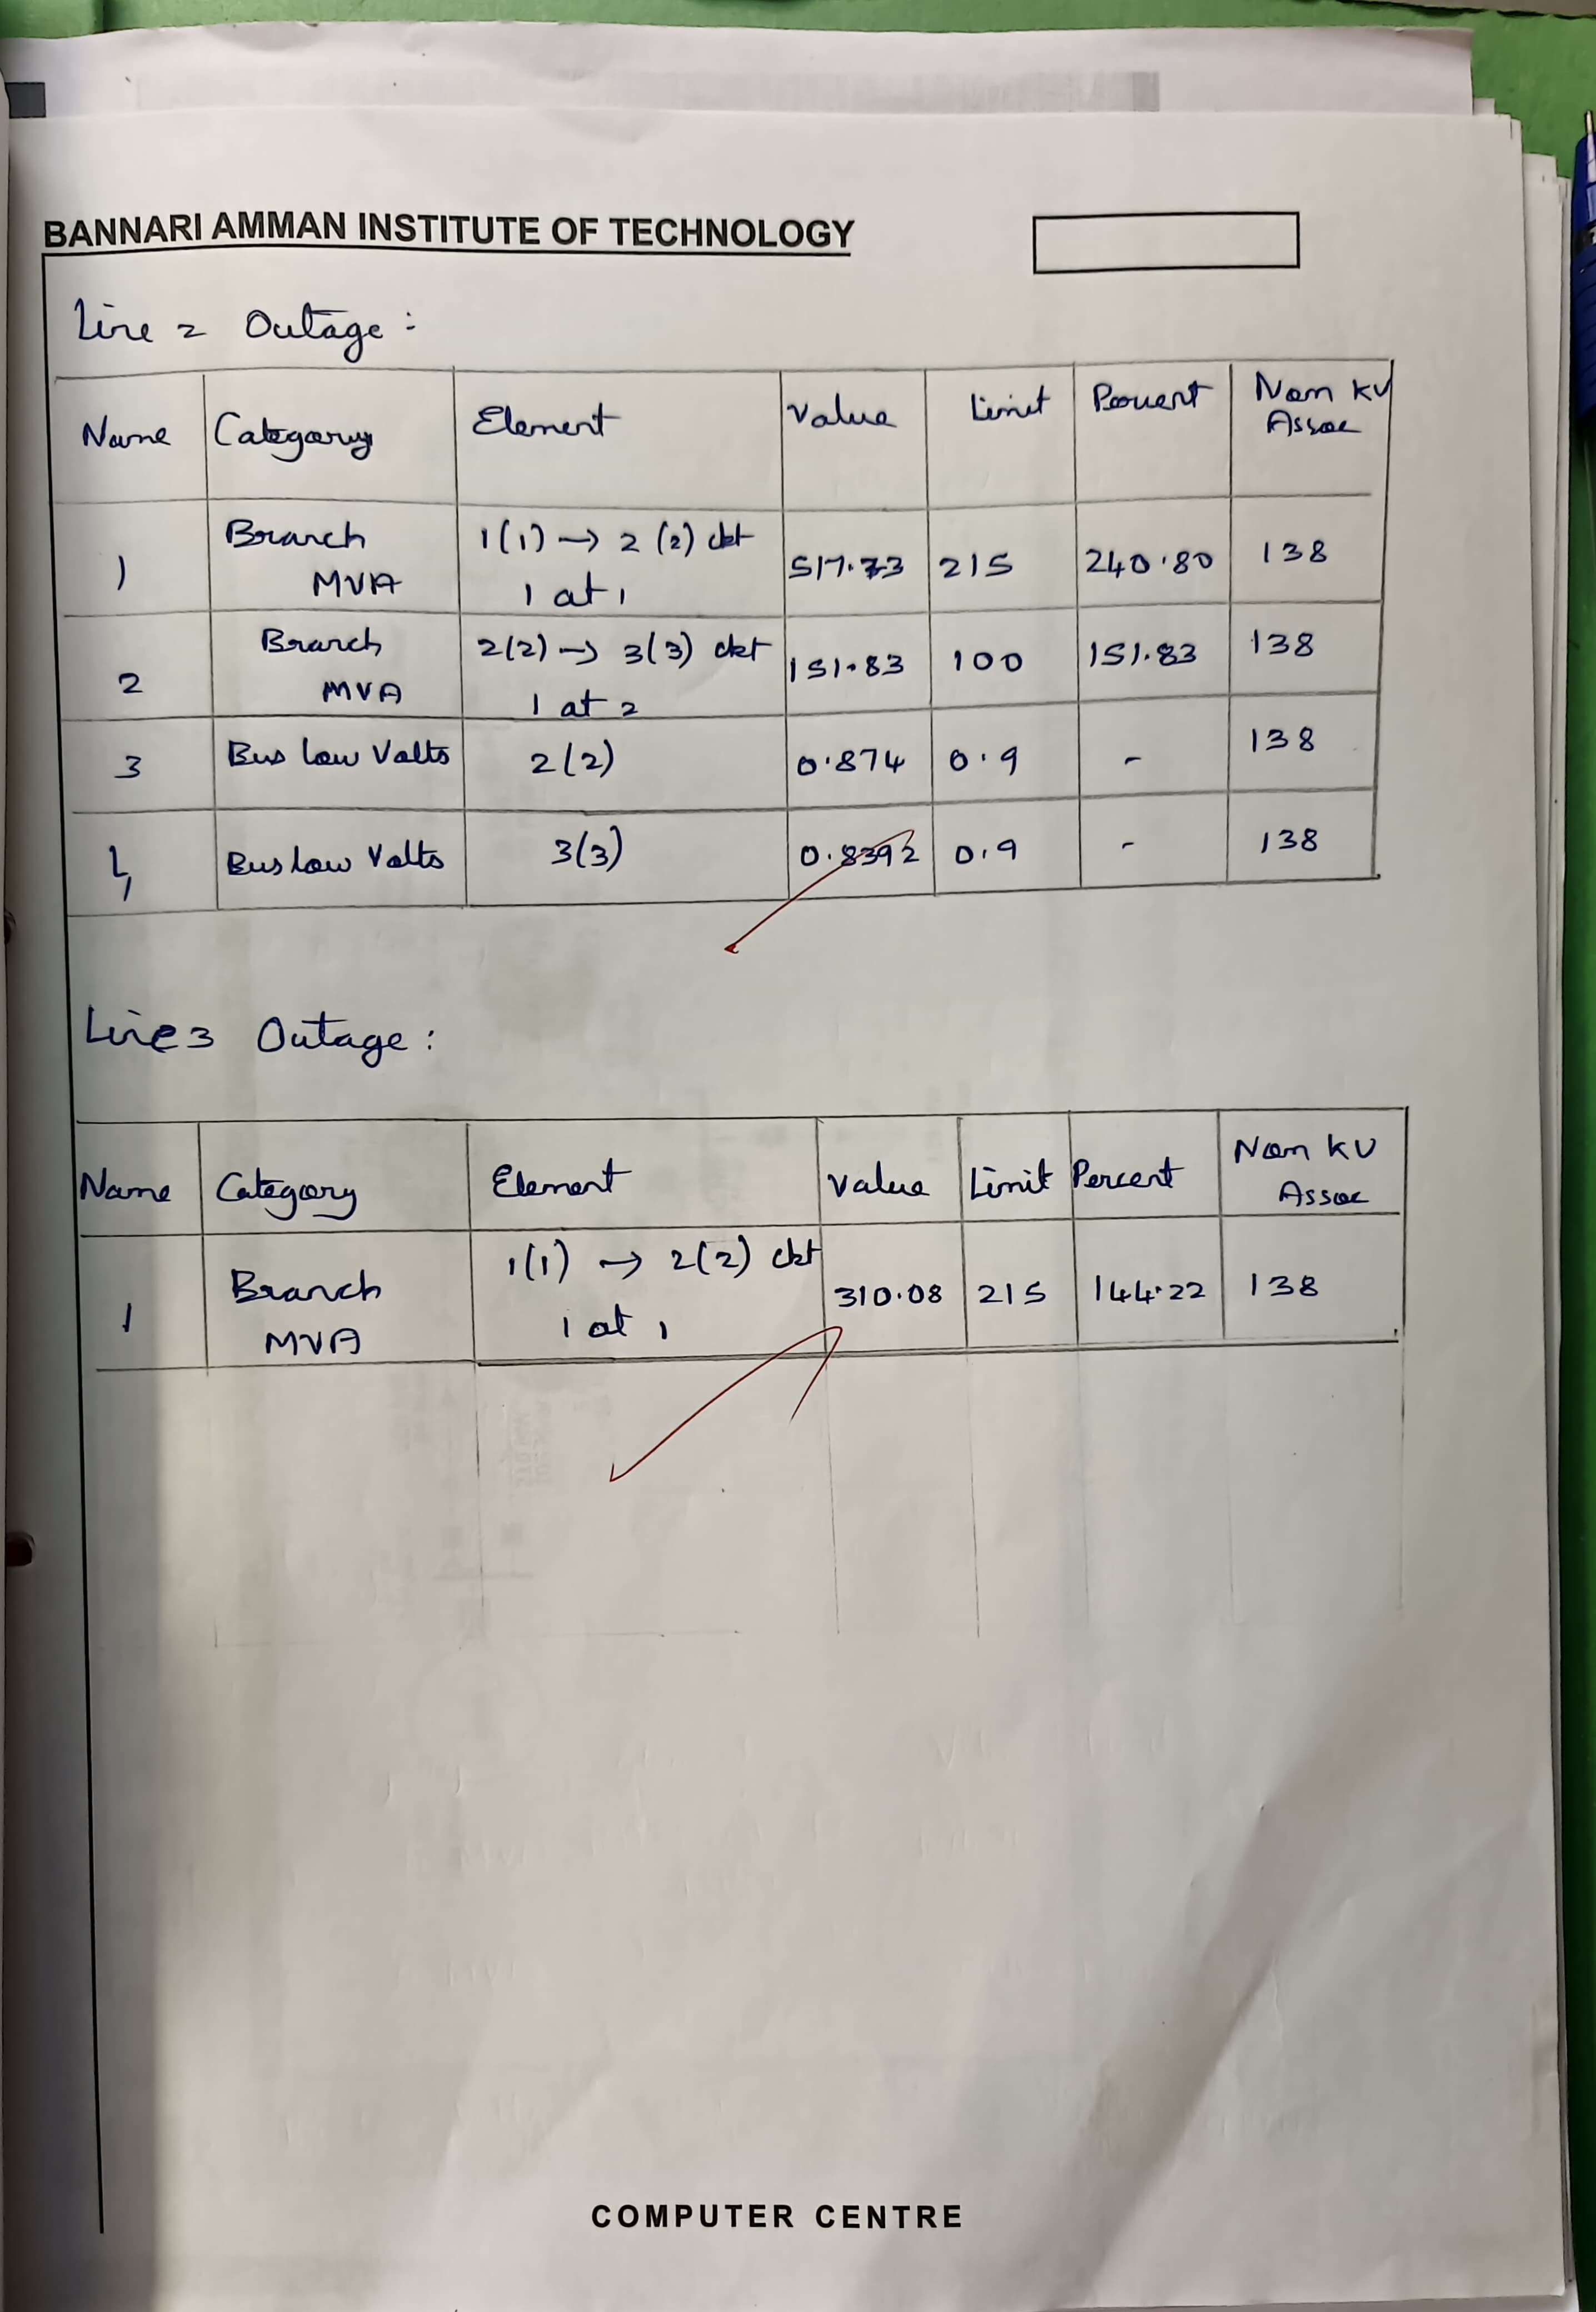 BANNARI AMMAN INSTITUTE OF TECHNOLOGY
Line 2 Outage :
Name Category Element Value Limit Percent Nom KV Assoc
1 Branch MVA 1(1) → 2 (2) ckt 1 at 1 517.73 215 240.80 138
2 Branch MVA 2(2) → 3(3) ckt 1 at 2 151.83 100 151.83 138
3 Bus low Volts 2(2) 0.874 0.9 - 138
4 Bus low Volts 3(3) 0.8392 0.9 - 138
Line 3 Outage :
Name Category Element Value Limit Percent Nom KV Assoc
1 Branch MVA 1(1) → 2(2) ckt 1 at 1 310.08 215 144.22 138
COMPUTER CENTRE